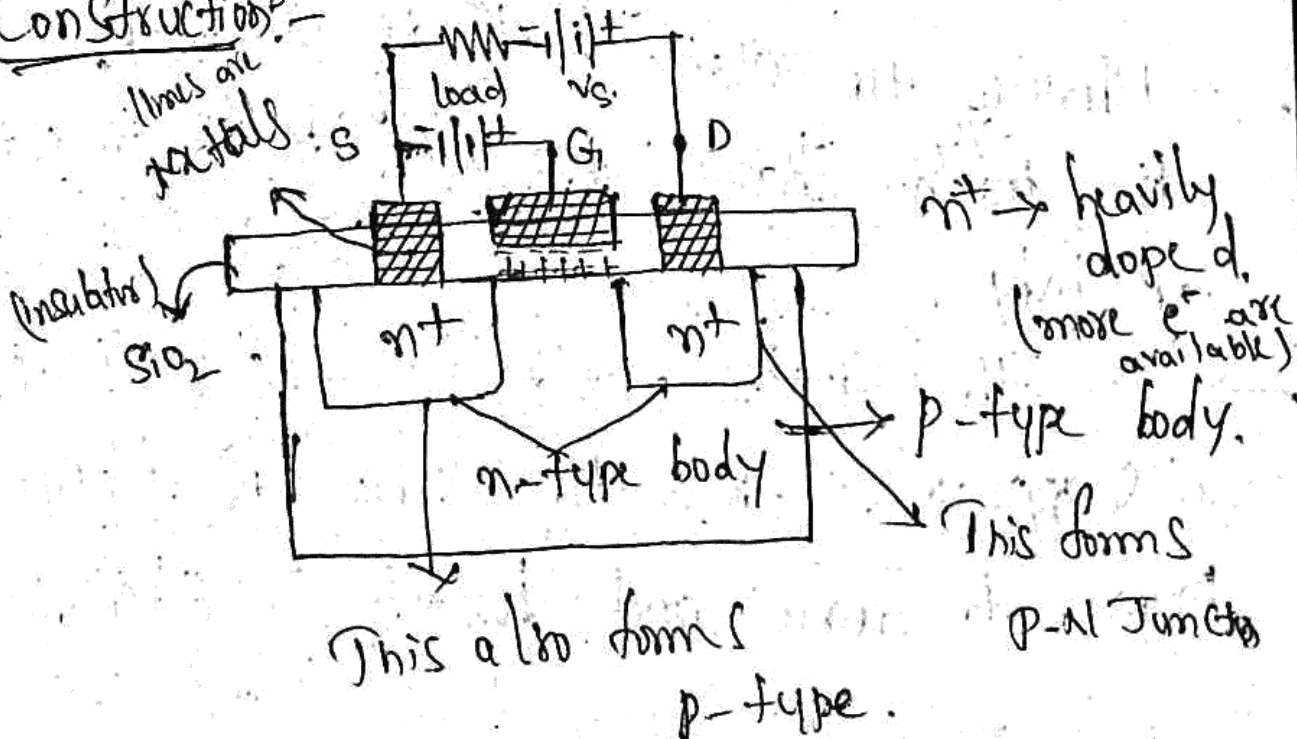 Construction:-
lines are
metals.
load
Vs.
S
G
D
- +
- +
(insulator)
SiO2
n+
n+
n-type body
n+ → heavily
doped.
(more e- are
available)
p-type body.
This forms
P-N Junctn
This also forms
p-type.